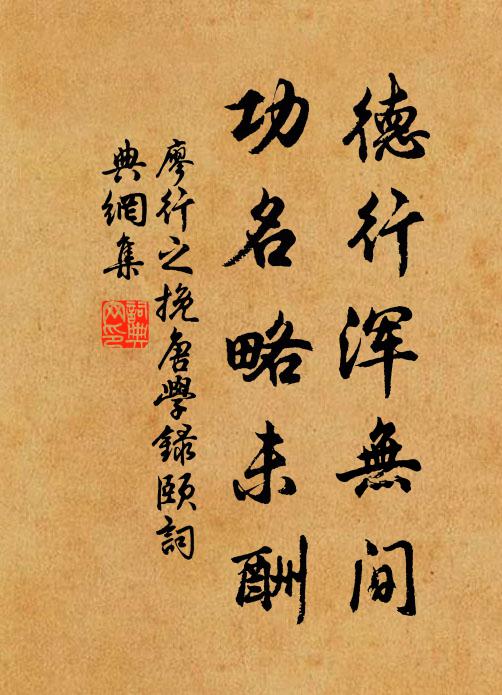 德行浑無间
功名略未酬
廖行之挽唐學録頤詞
典網集
詞典
网印